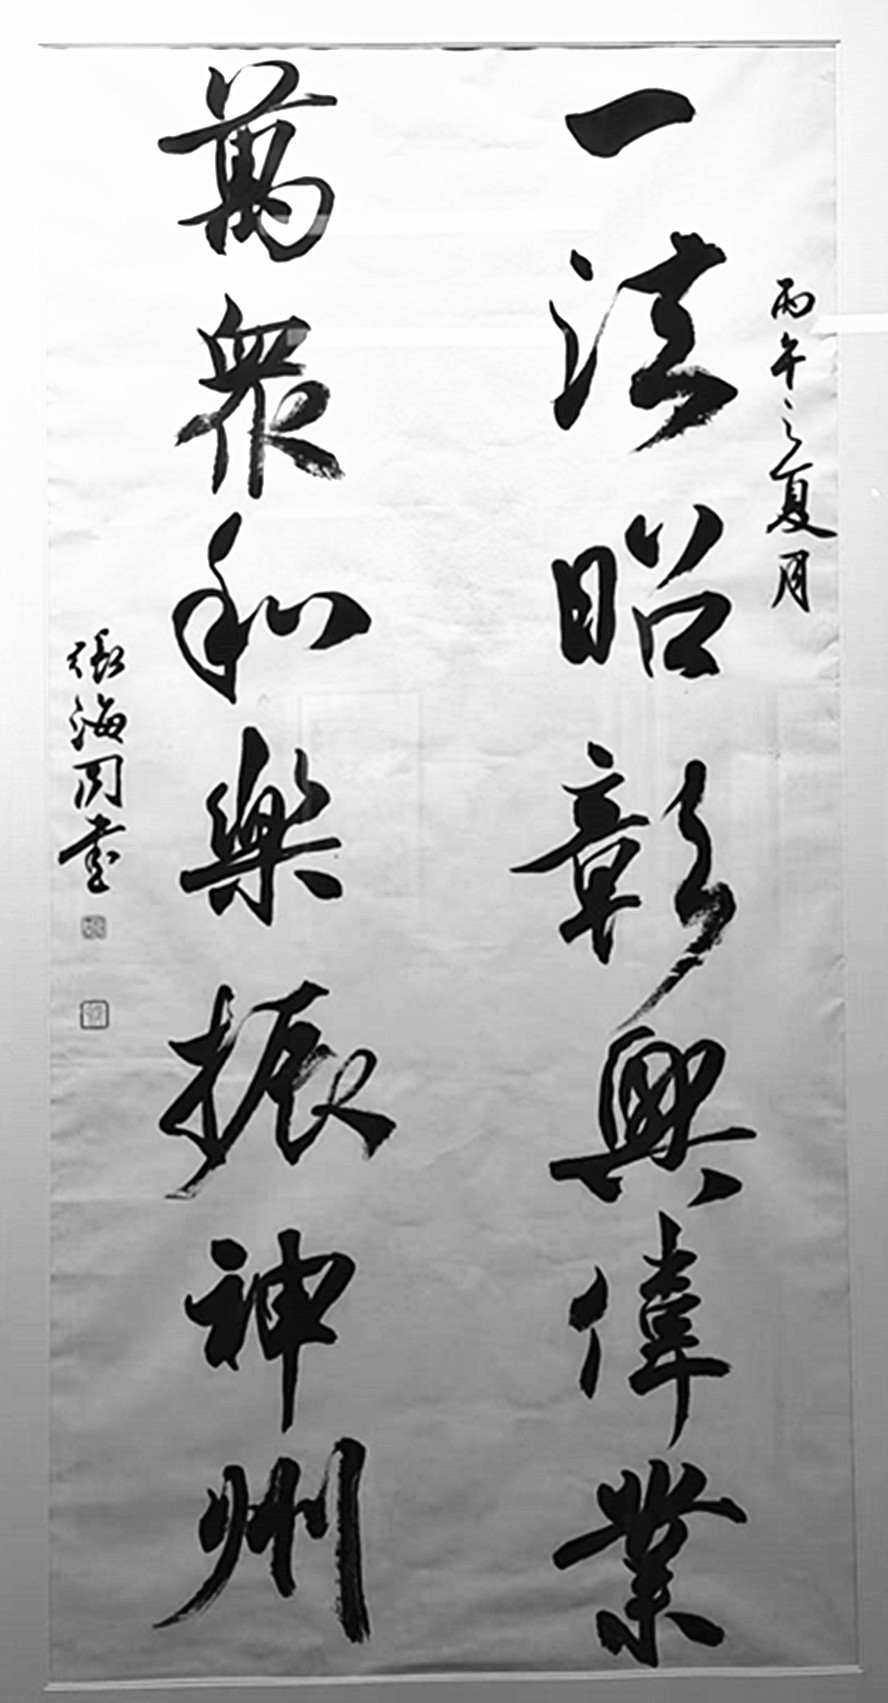 丙午之夏月
一法昭彰興偉業
萬眾和樂振神州
張海周書